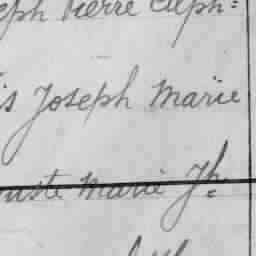 eph Pierre Alph=
is Joseph Marie
uste Marie Jh=